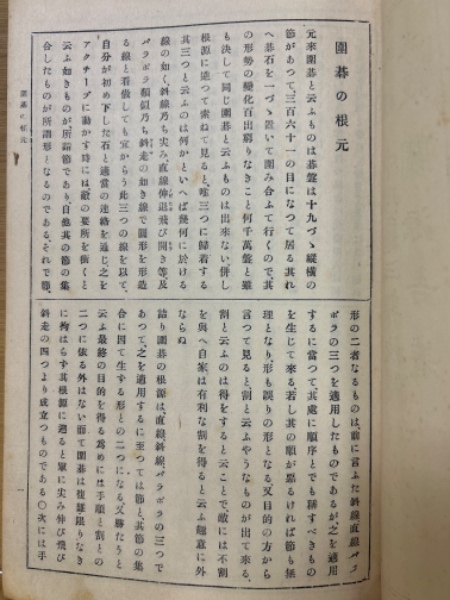 圍碁の根元
元來圍碁と云ふものは碁盤は十九づゝ縱横の
節があつて、三百六十一の目になつて居る其れ
へ碁石を一づゝ置いて圍み合ふて行くので、其
の形勢の變化百出窮りなきこと何千萬盤と雖
も決して同じ圍碁と云ふものは出來ない、併し
根源に遡つて索ねて見ると、唯三つに歸着する
其三つと云ふのは何かといへば幾何に於ける
線の如く、斜線乃ち尖み、直線伸退飛び開き等及
パラボラ類似乃ち斜走の如き線で圓形を形造
る線と看儀しても宜からう此三つの線を以て、
自分が初め下した石と適當の連絡を通じ、之を
アクチーブに動かす時には、敵の要所を衝くと
云ふ如きものが、所謂節であり、自他其の節の集
合したものが所謂形となるのである、それで節、
形の二者なるものは、前に言ふた斜線直線パラ
ボラの三つを適用したものであるが、之を適用
するに當つて、其處に順序とでも稱すべきもの
を生じて來る、若し其の順が惡るければ節も無
理となり、形も誤りの形となる、又目的の方から
言つて見ると、割と云ふやうなものが出て來る、
割と云ふのは得をすると云ことで、敵には不割
を與へ自家は有利な割を得ると云ふ趣意に外
ならぬ
詰り圍碁の根源は、直線斜線、パラボラの三つで
あつて、之を適用するに至つては節と、其節の集
合に因て生ずる形との二つになる、又勝たうと
云ふ最終の目的を得る爲めには手順と割との
二つに依る外はない而て圍碁は複雜限りなき
に拘はらず其根源に遡ると單に尖み伸び飛び
斜走の四つより成立つものである〇次には手
圍碁の根元
一